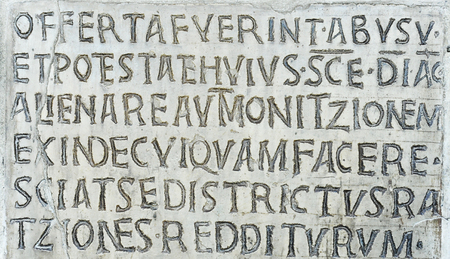 OFFERTA FVERINT ABVSV·
ET POTESTATE HVIVS·SCE·DIAC
ALIENARE AVMONITZIONEM
EXINDE CVIQVAM FACERE·
SCIAT SE DISTRICTVS RA
TZIONES REDDITVRVM·